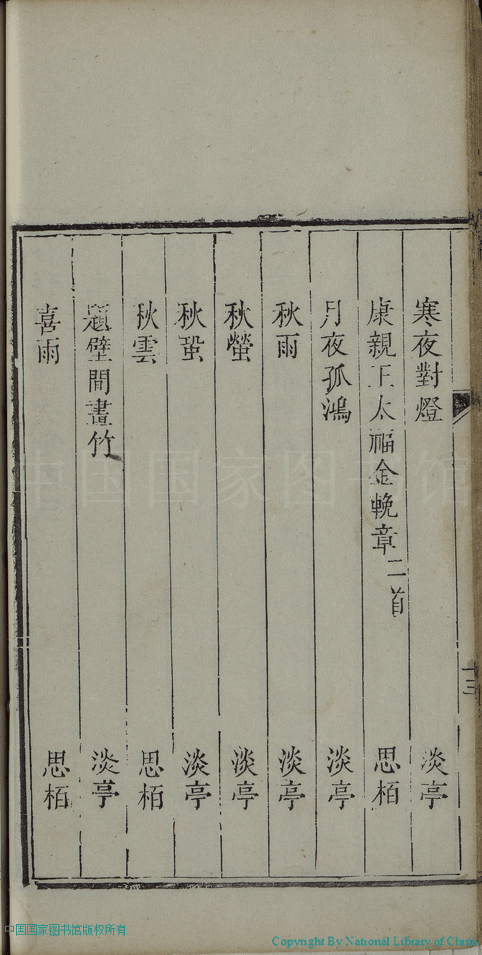 寒夜對燈 淡亭
康親王太福金輓章二首 思栢
月夜孤鴻 淡亭
秋雨 淡亭
秋螢 淡亭
秋蛩 淡亭
秋雲 思栢
題壁間畫竹 淡亭
喜雨 思栢
十三
中国国家图书馆
中国国家图书馆版权所有
Copyright By National Library of China